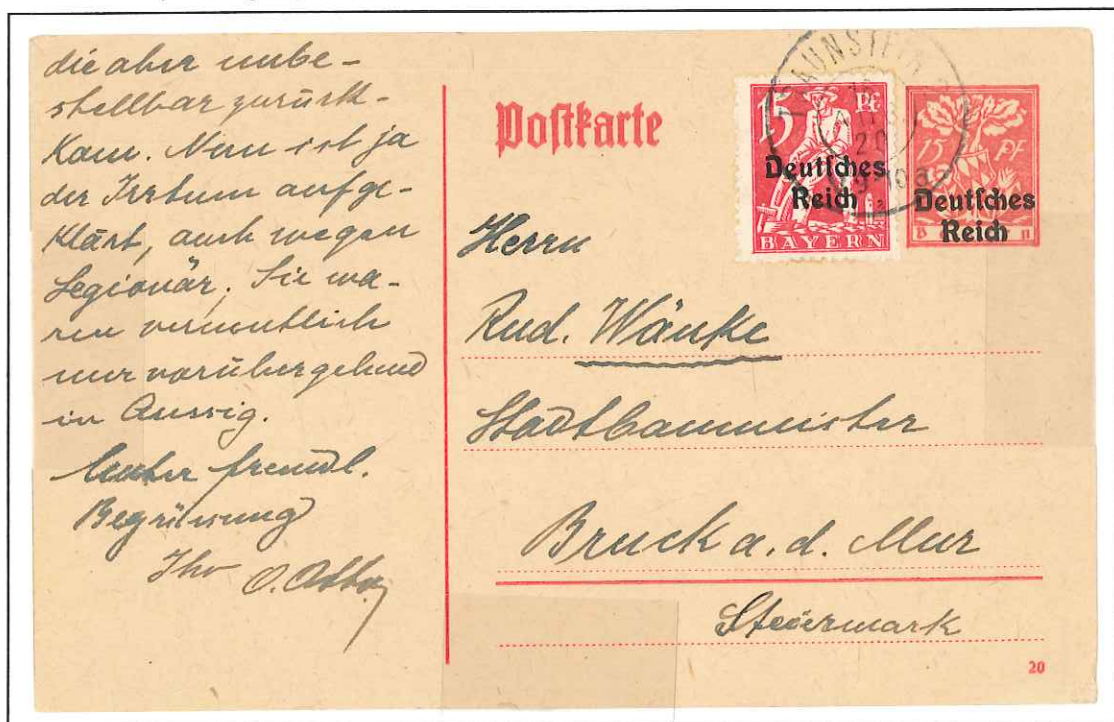 die aber unbe-
stellbar zurück-
kam. Nun ist ja
der Irrtum aufge-
klärt, auch wegen
Legionär; Sie wa-
ren vermutlich
nur vorübergehend
in Aussig.
Unter freundl.
Begrüssung
Ihr
Postkarte
15 Pf
Deutsches
Reich
BAYERN
15 PF
Deutsches
Reich
Herrn
Rud. Wänke
Stadtbaumeister
Bruck a. d. Mur
Steiermark
20